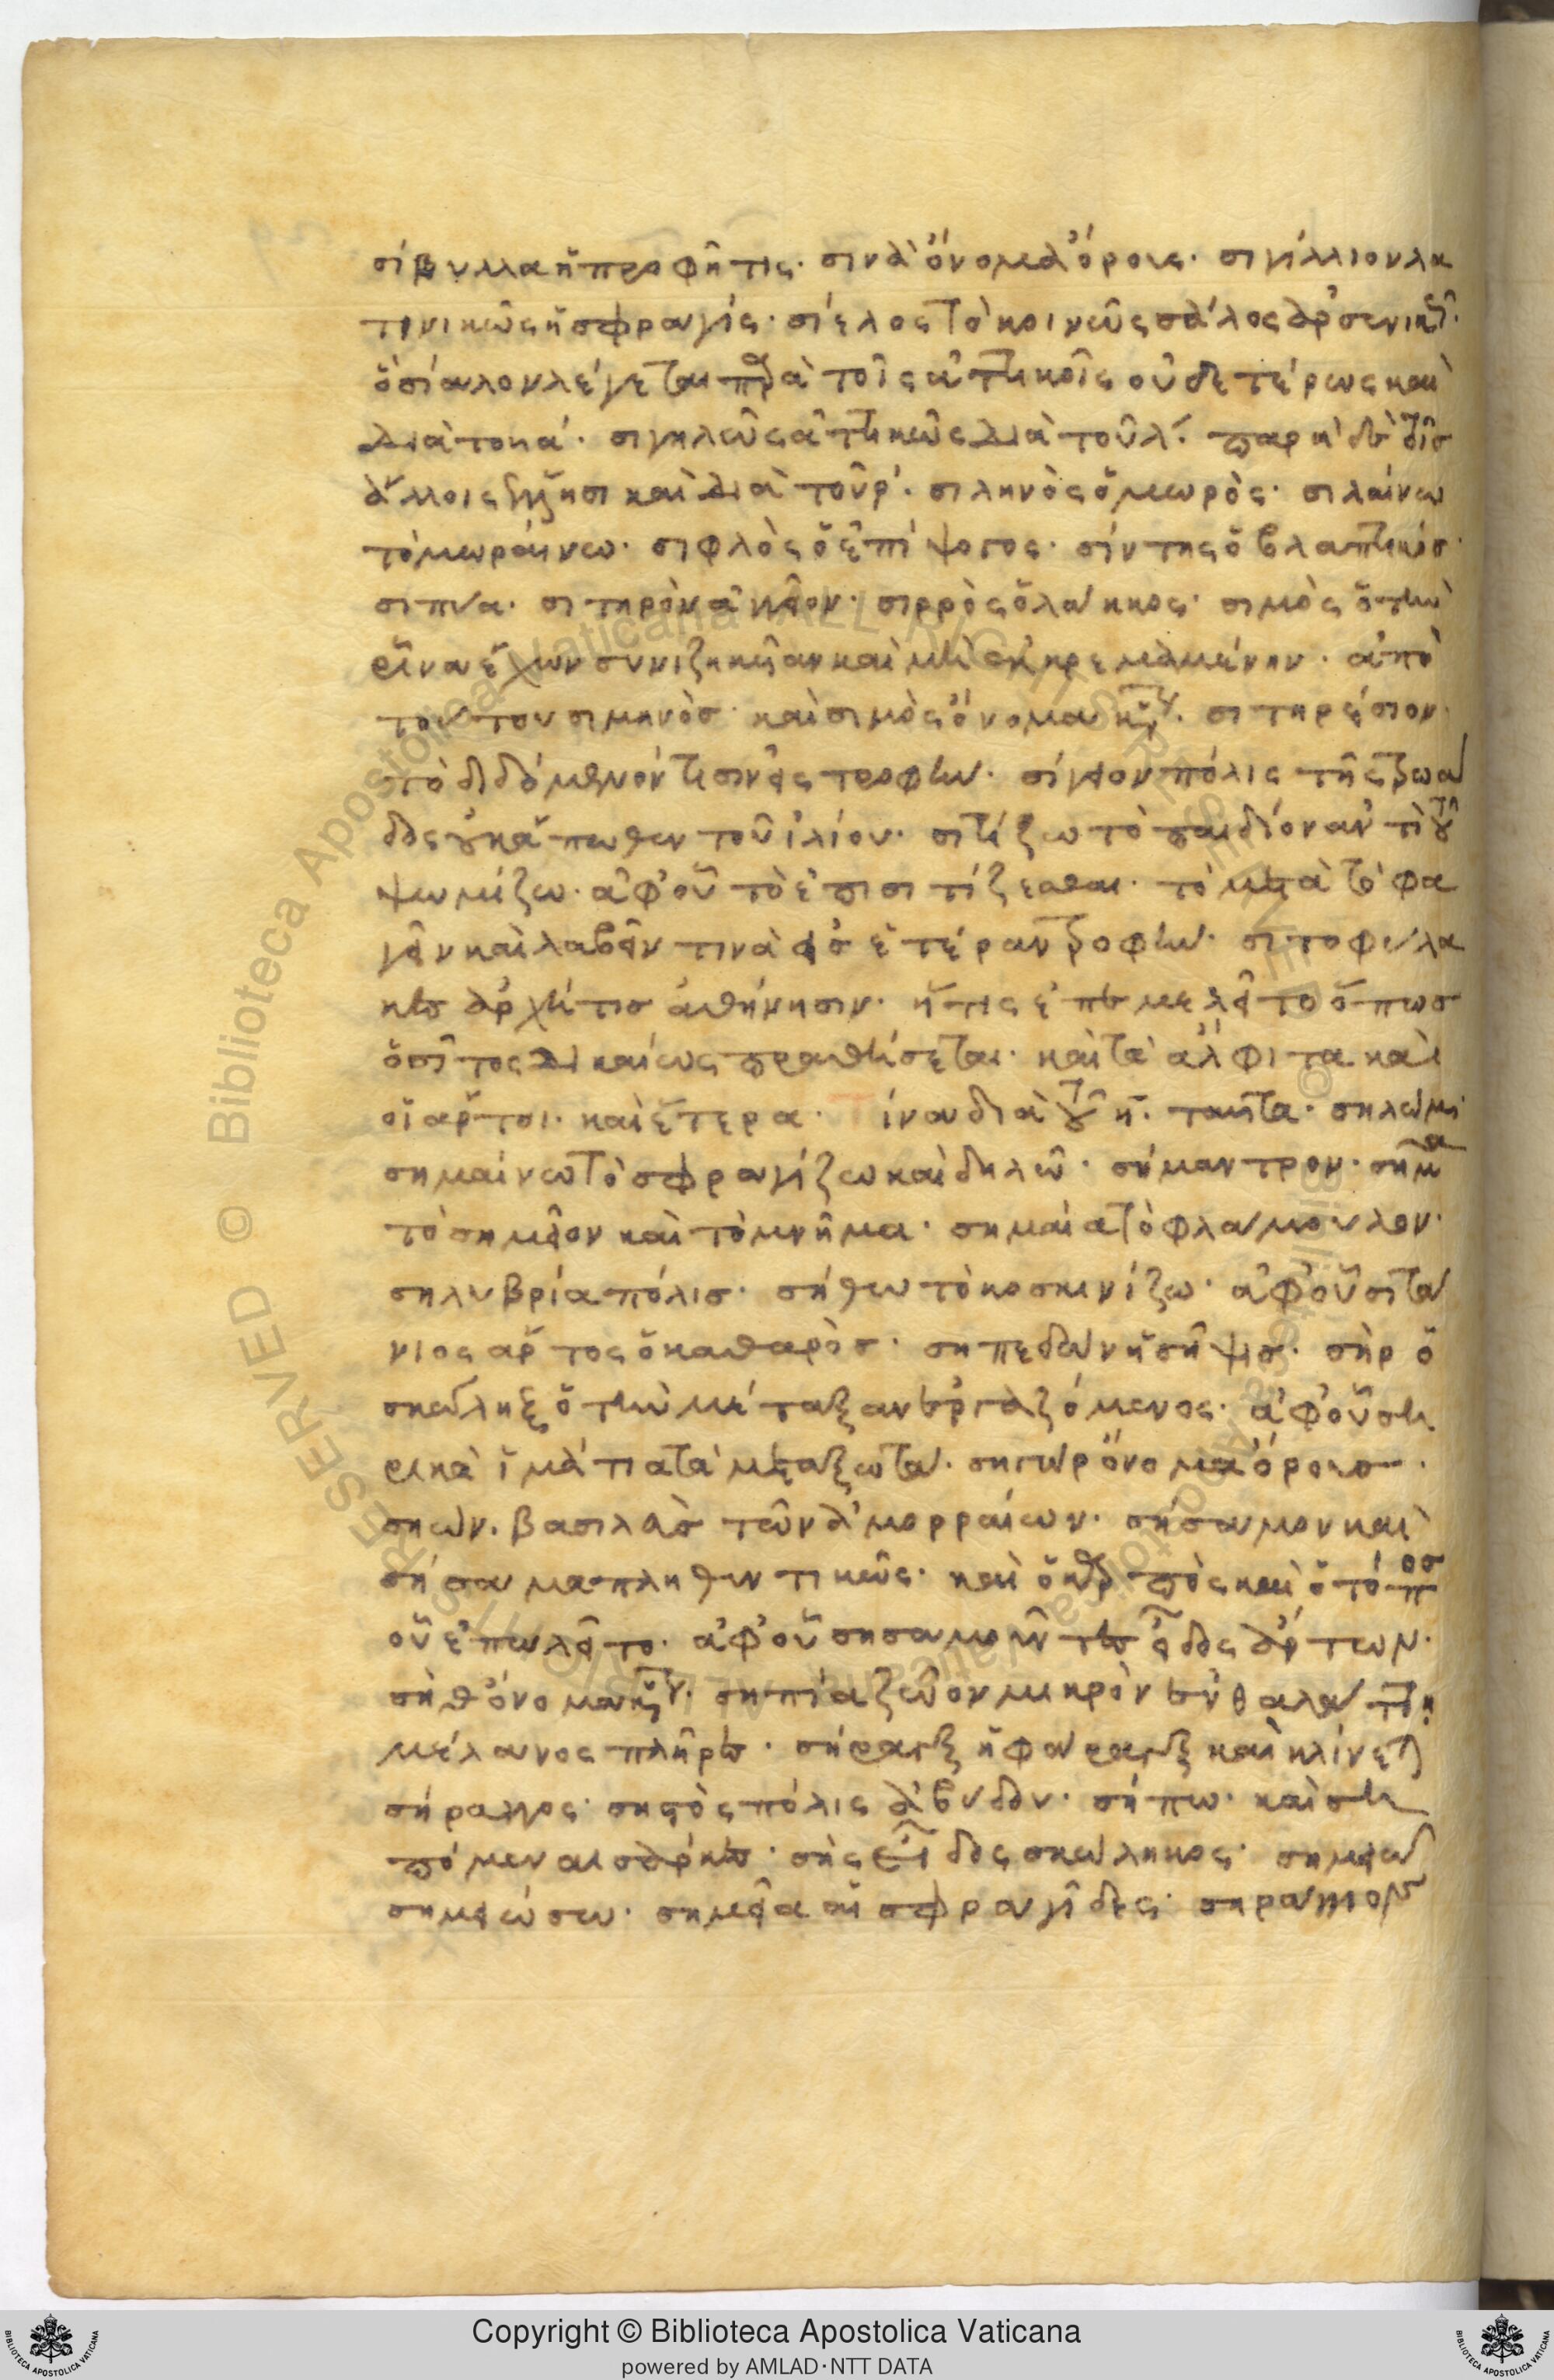 σίβυλλα ἡ προφῆτις· σινὰ ὄνομα ὄρους· σιγίλλιον λα
τινικῶς ἡ σφραγίς· σίελος τὸ κοινῶς σάλος ἀρσενικῶς·
ὃ σίαλον λέγεται παρὰ τοῖς ἀττικοῖς οὐδετέρως καὶ
διὰ τοῦ α· σιγηλῶς ἀττικῶς διὰ τοῦ λ· παρὰ δὲ τοῖς
ἄλλοις Ἕλλησι καὶ διὰ τοῦ ρ· σιληνὸς ὁ μωρὸς· σιλαίνω
τὸ μωραίνω· σιφλὸς ὁ ἐπίψογος· σίντης ὁ βλαπτικός·
σιπύα· σιτηρὸν ἀγγεῖον· σιρρὸς ὁ λάκκος· σιμὸς ὁ τὴν
ῥῖνα ἔχων συνιζηκυῖαν καὶ μὴ ἐκκρεμαμένην· ἀπὸ
τούτου σιμηνὸς· καὶ σιμὸς ὄνομα κύριον· σιτηρέσιον
τὸ διδόμενόν τισιν εἰς τροφήν· σίγειον πόλις τῆς τρωά
δος ἐγκάτωθεν τοῦ ἰλίου· σιτίζω τὸ παιδίον ἀντὶ τοῦ
ψωμίζω· ἀφ' οὗ τὸ ἐπισιτίζεσθαι· τὸ μετὰ τὸ φα
γεῖν καὶ λαβεῖν τινὰ εἰς ἑτέραν τροφήν· σιτοφύλα
κες ἀρχή τις ἀθήνησιν· ἥτις ἐπεμελεῖτο ὅπως
ὁ σῖτος δικαίως πραθήσεται· καὶ τὰ ἄλφιτα καὶ
οἱ ἄρτοι· καὶ ἕτερα· Τίνα διὰ τοῦ η· ταῦτα· σηλῶμ·
σημαίνω τὸ σφραγίζω καὶ δηλῶ· σήμαντρον· σῆμα
τὸ σημεῖον καὶ τὸ μνῆμα· σημαία τὸ φλάμουλον·
σηλυβρία πόλις· σήθω τὸ κοσκινίζω· ἀφ' οὗ σητά
νιος ἄρτος ὁ καθαρὸς· σηπεδὼν ἡ σῆψις· σὴρ ὁ
σκώληξ ὁ τὴν μέταξαν ἐργαζόμενος· ἀφ' οὗ ση
ρικὰ ἱμάτια τὰ μεταξωτά· σηὶρ ὄνομα ὄρους·
σηών· βασιλεὺς τῶν ἀμορραίων· σήσαμον καὶ
σήσαμα πληθυντικῶς· καὶ ὁ καρπὸς καὶ ὁ τόπος
οὗ ἐπωλεῖτο· ἀφ' οὗ σησαμοῦντες εἶδος ἄρτων·
σὴθ ὄνομα κύριον· σηπία ζῶον μικρὸν ἐν θαλάττῃ
μέλανος πλῆρες· σήραγξ ἡ φάραγξ καὶ κλίνεται
σήραγγος· σηστὸς πόλις ἀβύδου· σήπω· καὶ ση
πόμεναι σάρκες· σὴς εἶδος σκώληκος· σημειῶ
σημειώσω· σημεῖα αἱ σφραγῖδες· σηραγγιον